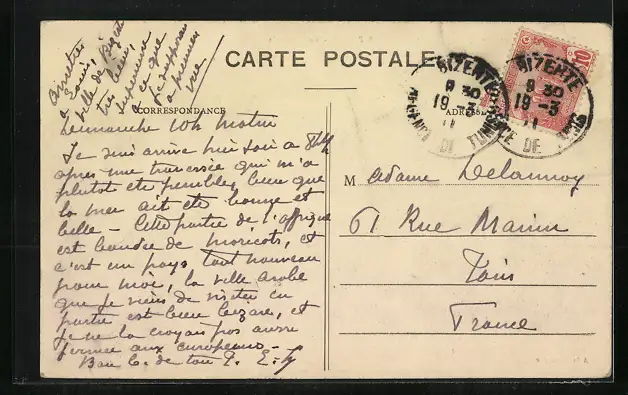 CARTE POSTALE
CORRESPONDANCE
ADRESSE
Bizerte est
ville de
très bien,
supérieure
à ce que
je supposais
à première
vue
Dimanche 10h matin
Je suis arrivé hier soir à 8h
après une traversée qui m'a
plutôt été pénible, bien que
la mer ait été bonne et
belle - Cette partie de l'Afrique
est bondée de moricots, et
c'est un pays tout nouveau
pour moi, la ville arabe
que je viens de visiter en
partie est bien bizare, et
je ne la croyais pas aussi
fermée aux européens -
Bon b. de ton P. E.
Madame Delannoy
61 Rue
Paris
France
BIZERTE
9 30
19 - 3
11
REGENCE DE TUNIS
BIZERTE
9 30
19 - 3
11
REGENCE DE TUNIS
10